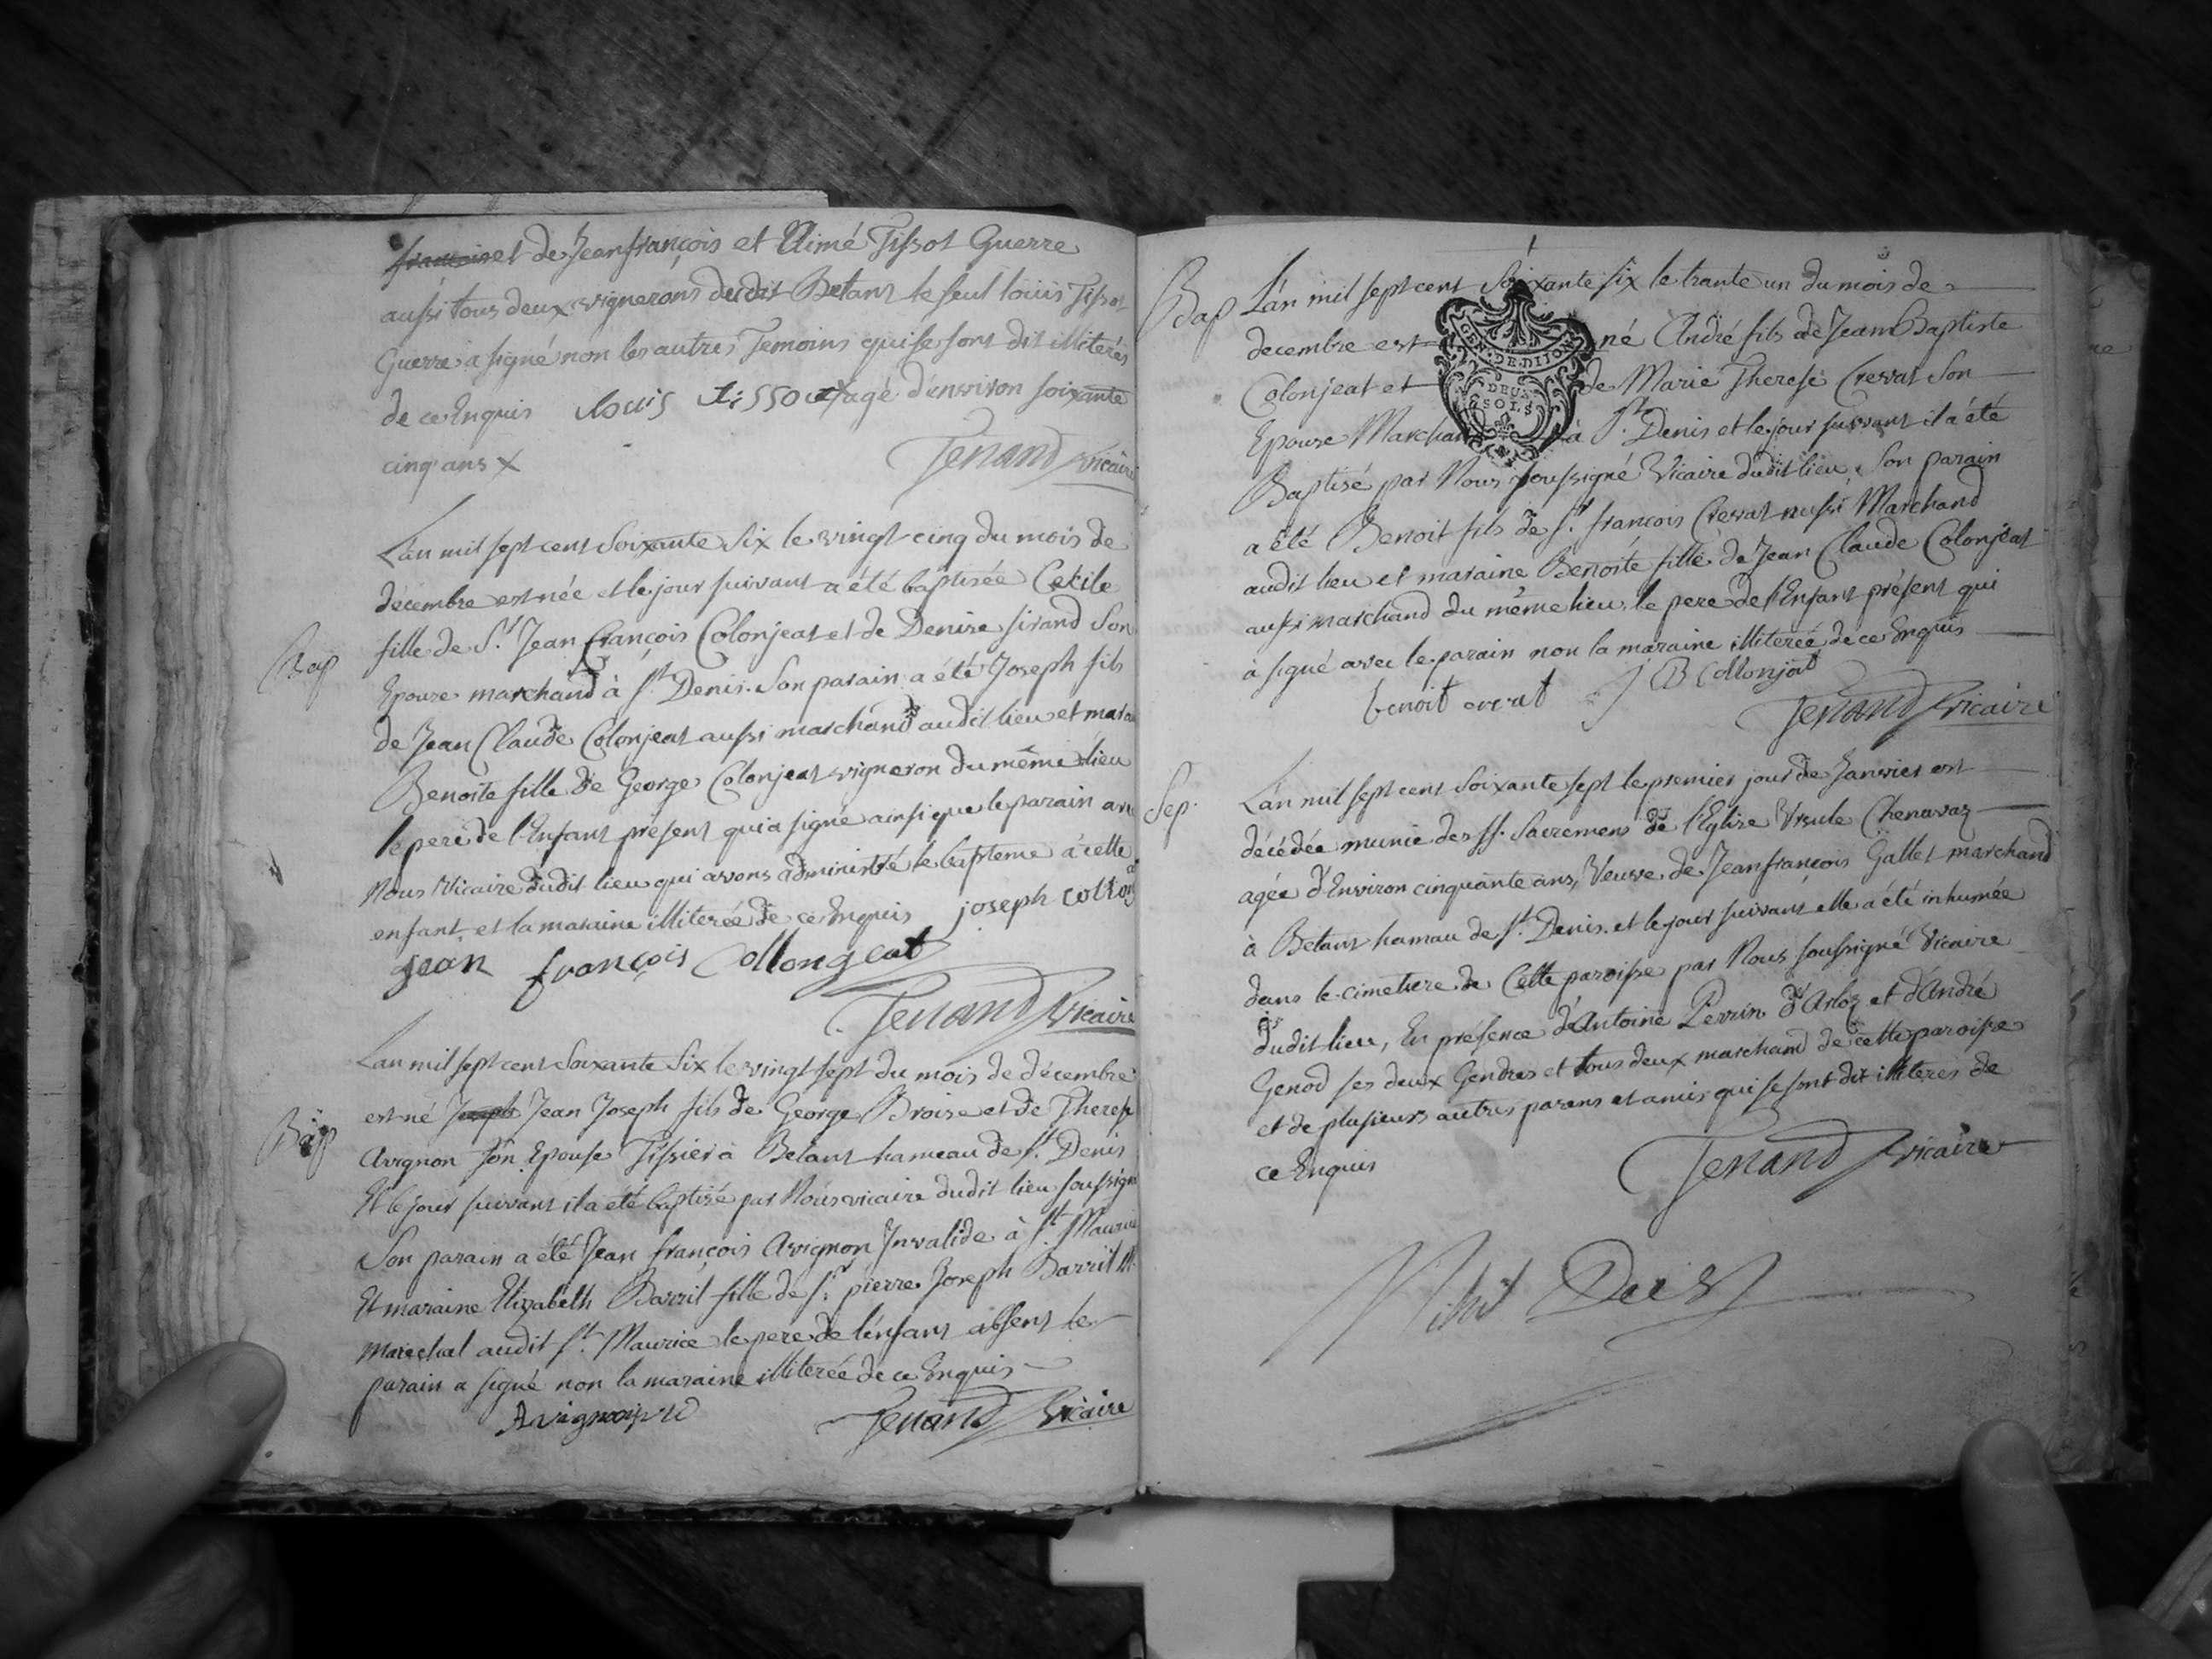 et de Jeanfrançois et Aimé Tissot Guerre
aussi tous deux vignerons dudit Betant le seul loüis Tissot
Guerre a signé non les autres Temoins qui se sont dit illiterés
de ce Enquis Louis Tissot X agé d'environ soixante
cinq ans X Tenand vicaire
L'an mil sept cent Soixante Six le vingt-cinq du mois de
décembre est née et le jour suivant a été baptisée Cecile
Bap
fille de Sr. Jean François Colonjeat et de Denise sirand Son
Epouse marchand à St. Denis. Son parain a été Joseph fils
de Jean Claude Colonjeat aussi marchand audit lieu et marai
Benoite fille de George Colonjeat vigneron du même lieu
le pere de l'Enfant présent qui a signé ainsi que le parain avec
Nous Vicaire dudit lieu qui avons administré le bapteme à cette
enfant et la maraine illiterée de ce Enquis joseph collon
jean françois Collongeat
Tenand Vicaire
L'an mil sept cent Soixante Six le vingt sept du mois de décembre
Bap
est né Jean Joseph fils de George Broise et de Therese
Avignon son Epouse Tissier à Betant hameau de St. Denis
Et le jour suivant il a été baptisé par Nous vicaire dudit lieu soussigné
Son parain a été Jean françois Avignon Invalide à St. Maurice
Et maraine Elizabeth Barril fille de Sr. pierre Joseph Barril M.
Marechal audit St. Maurice le pere de l'enfant absent le
parain a signé non la maraine illiterée de ce Enquis
Tenand Vicaire
Bap
L'an mil sept cent Soixante six le trante un du mois de
decembre est né André fils de Jean Baptiste
Colonjeat et de Marie Therese Crevat Son
Epouse Marchand à St. Denis et le jour suivant il a été
GEN. DE DIJON
DEUX
SOLS
Baptisé par Nous soussigné Vicaire dudit lieu, Son parain
a été Benoit fils de Sr. françois Crevat aussi Marchand
audit lieu et maraine Benoite fille de Jean Claude Colonjeat
aussi marchand du même lieu, le pere de l'Enfant présent qui
à signé avec le parain non la maraine illiterée de ce Enquis
benoit crevat J B Collonjat
Tenand Vicaire
Sep.
L'an mil sept cent Soixante sept le premier jour de Janvier est
décédée munie des SS. Sacremens de l'Eglise Ursule Chenavaz
agée d'Environ cinquante ans, Veuve de Jeanfrançois Gallet marchand
à Betant hamau de St. Denis. et le jour suivant elle a été inhumée
dans le cimetiere de Cette paroisse par Nous soussigné Vicaire
dudit lieu, En présence d'Antoine Perrin d'Arloz et d'André
Genod ses deux Gendres et tous deux marchand de cette paroisse
et de plusieurs autres parans et amis qui se sont dit illiteres de
ce Enquis
Tenand vicaire
Nihil Deest